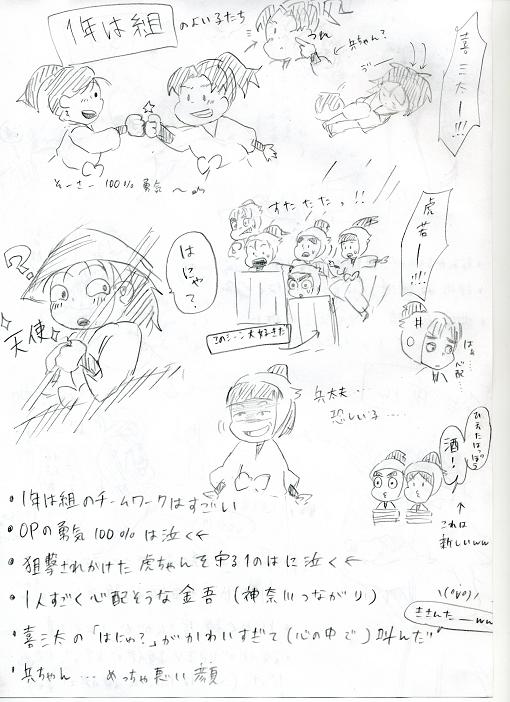 1年は組のよい子たち
うれ
兵ちゃん?
喜三太ー!!!
そーさー100%勇気〜
すたたたっ!!
虎若ー!!!
はにゃ?
天使
このシーン大好きだ
心配…
兵太夫…
恐しい子…
酒!
これは
新しいww
・1年は組のチームワークはすごい
・OPの勇気100%は泣く←
・狙撃されかけた虎ちゃんを守る1のはに泣く←
・1人すごく心配そうな金吾(神奈川つながり)
・喜三太の「はにゃ?」がかわいすぎて(心の中で)叫んだ
きさんたーww
・兵ちゃん…めっちゃ悪い顔